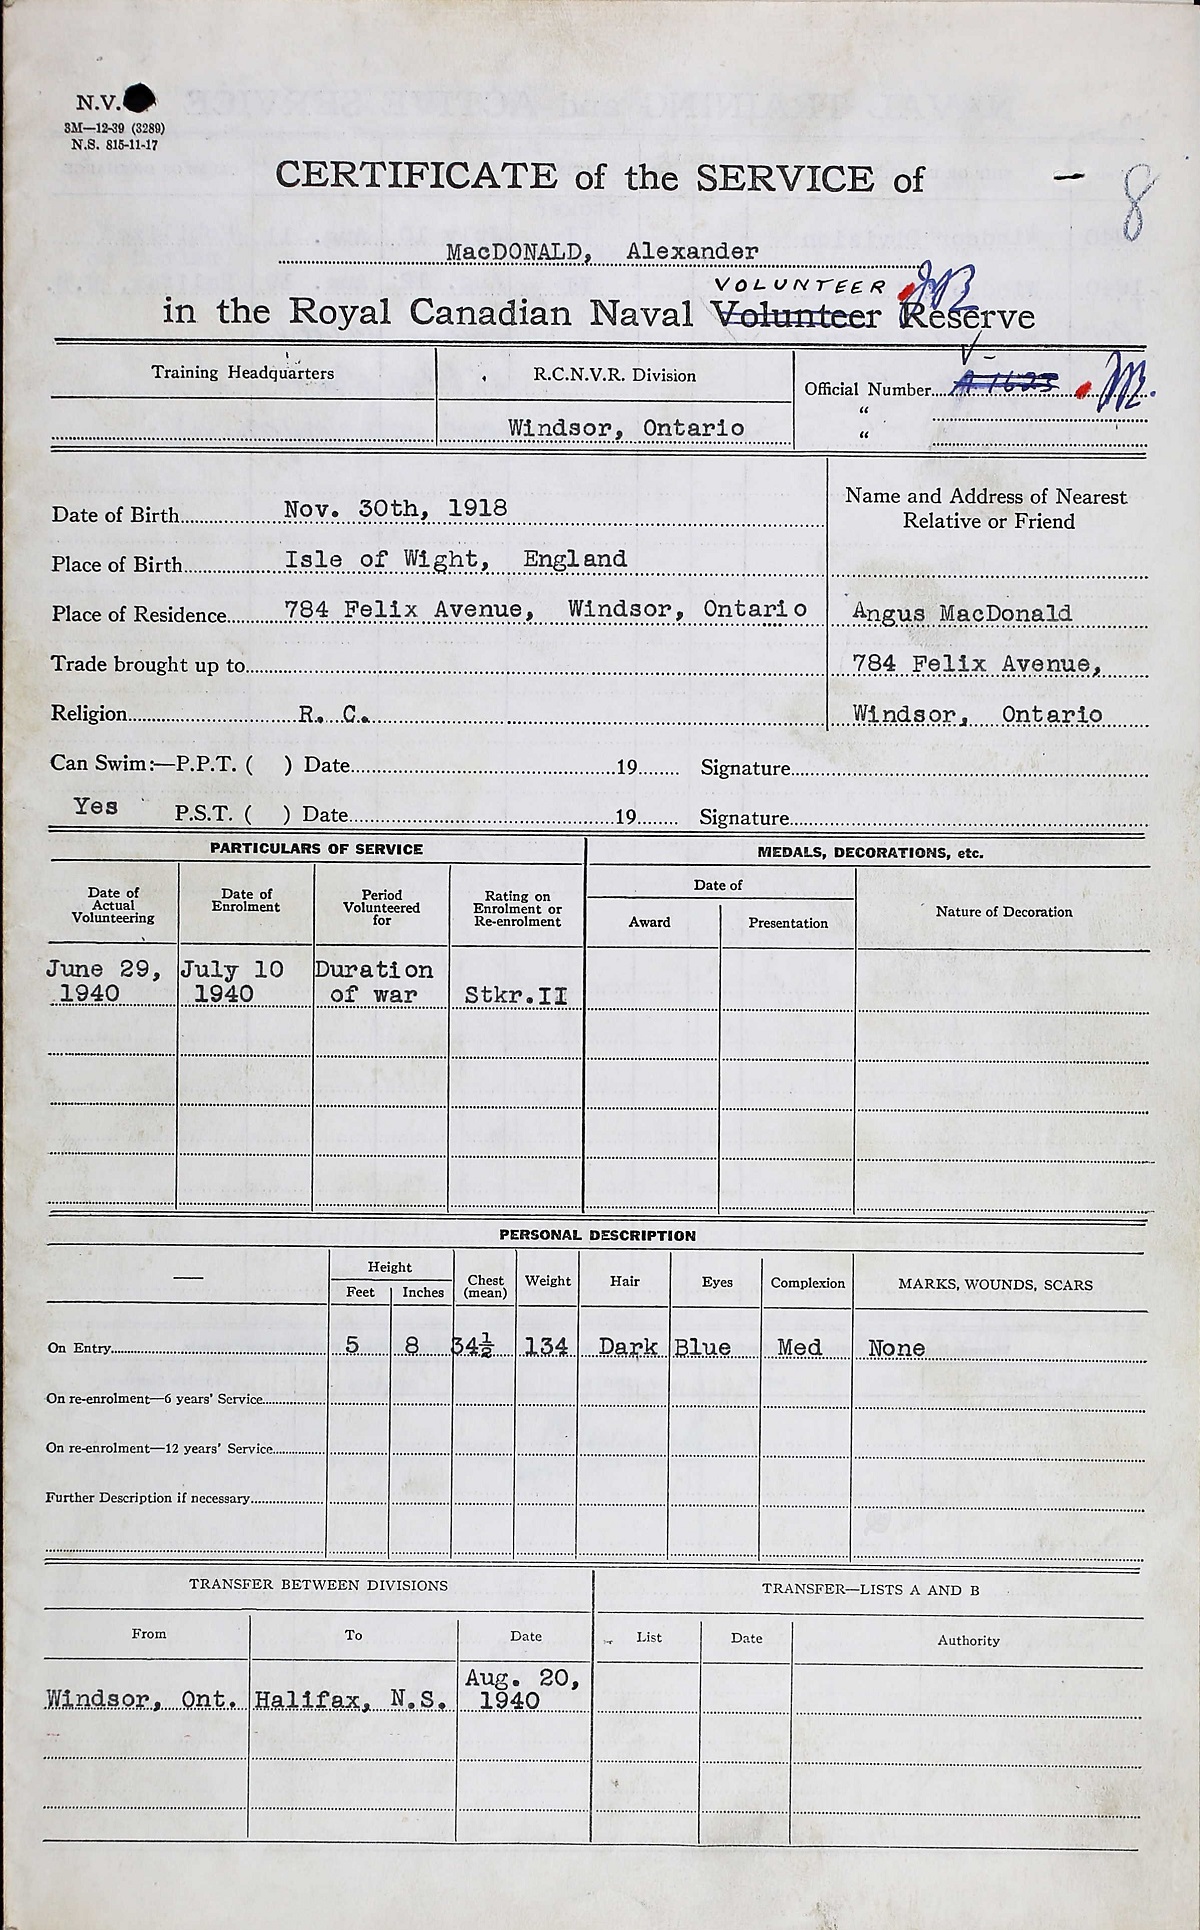 N.V.
3M—12-39 (3289)
N.S. 815-11-17
CERTIFICATE of the SERVICE of
— 8
MacDONALD, Alexander
VOLUNTEER
in the Royal Canadian Naval Volunteer Reserve
Training Headquarters
R.C.N.V.R. Division
Official Number A 1623
“
Windsor, Ontario
“
Name and Address of Nearest
Relative or Friend
Date of Birth Nov. 30th, 1918
Place of Birth Isle of Wight, England
Place of Residence 784 Felix Avenue, Windsor, Ontario
Angus MacDonald
Trade brought up to
784 Felix Avenue,
Religion R. C.
Windsor, Ontario
Can Swim:—P.P.T. ( ) Date 19 Signature
Yes P.S.T. ( ) Date 19 Signature
PARTICULARS OF SERVICE
MEDALS, DECORATIONS, etc.
Date of
Actual
Volunteering
Date of
Enrolment
Period
Volunteered
for
Rating on
Enrolment or
Re-enrolment
Date of
Award
Presentation
Nature of Decoration
June 29,
1940
July 10
1940
Duration
of war
Stkr.II
PERSONAL DESCRIPTION
—
Height
Feet
Inches
Chest
(mean)
Weight
Hair
Eyes
Complexion
MARKS, WOUNDS, SCARS
On Entry 5 8 34½ 134 Dark Blue Med None
On re-enrolment—6 years' Service
On re-enrolment—12 years' Service
Further Description if necessary
TRANSFER BETWEEN DIVISIONS
TRANSFER—LISTS A AND B
From
To
Date
List
Date
Authority
Windsor, Ont.
Halifax, N.S.
Aug. 20,
1940